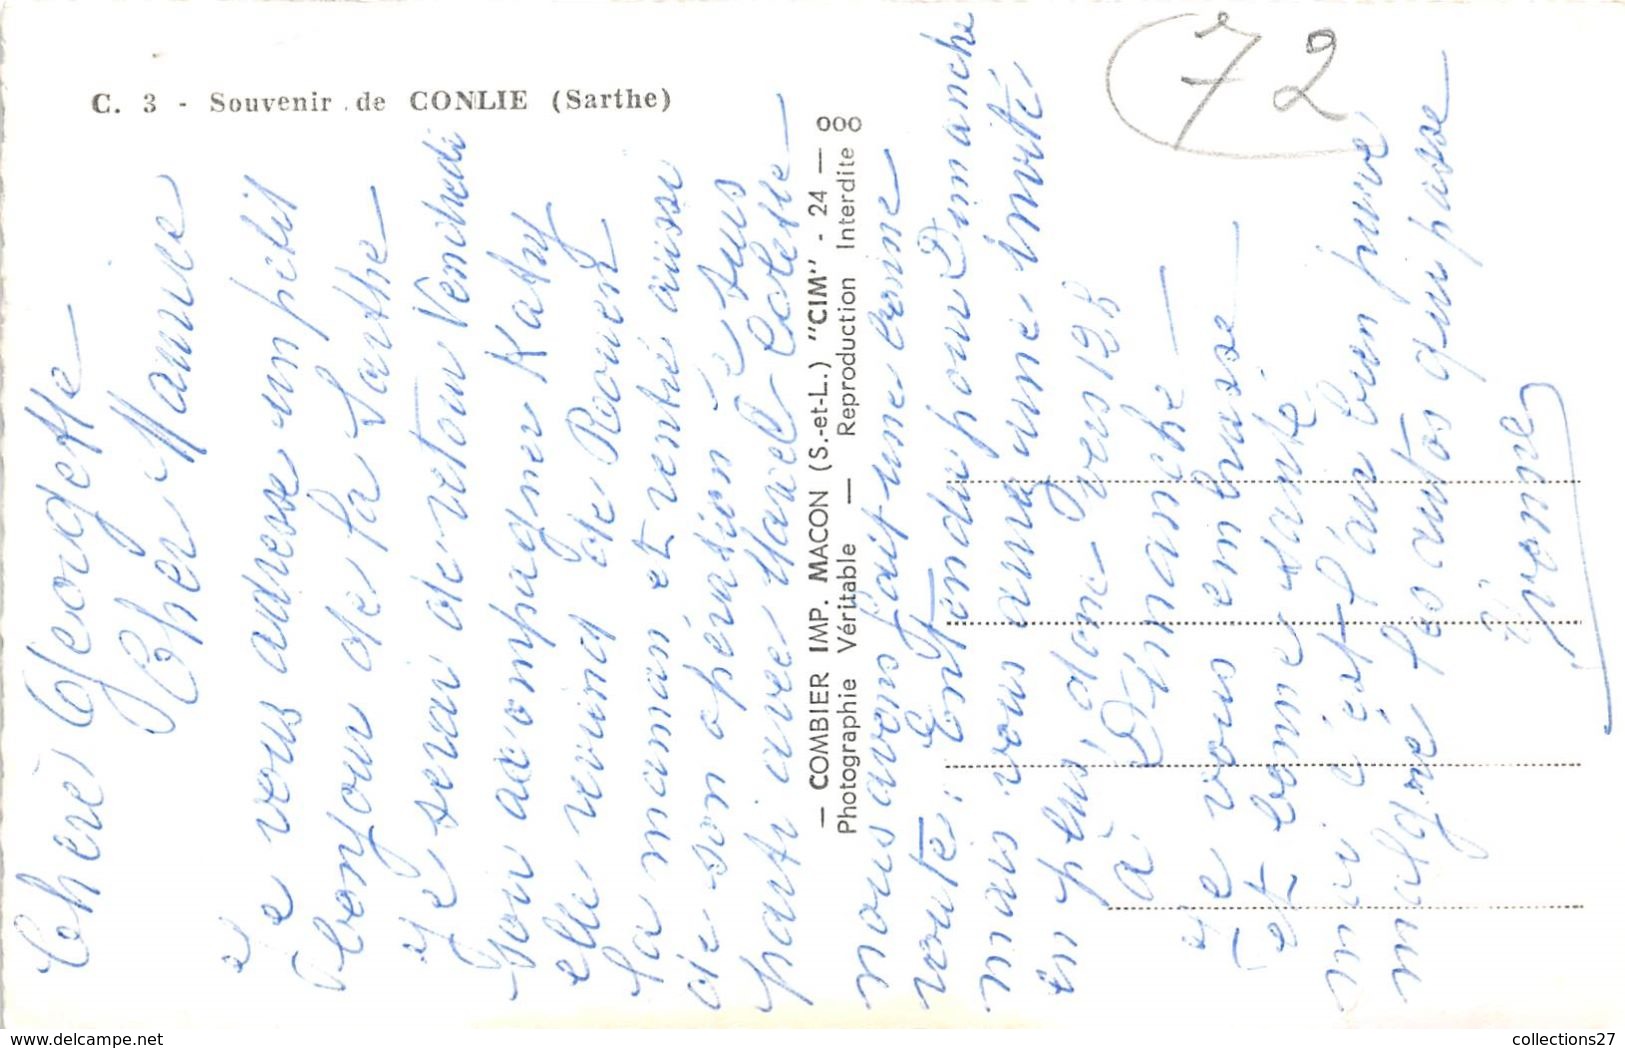 C. 3 - Souvenir de CONLIE (Sarthe)
72
Chère Georgette
Cher Maurice
Je vous adresse un petit
bonjour de la Sarthe
Je serai de retour Vendredi
pour accompagner Katy
elle revient de Rouen
Sa maman et rentré aussi
de son opération
parti avec Marcel Colette
nous avons fait une bonne
route. Entendu pour Dimanche
mais vous aurez une invité
en plus donc vers 12 h
à Dimanche
Je vous embrasse
et bonne santé
ici c'est l'air bien pure
malgré les autos qui passe
Yvonne
— COMBIER IMP. MACON (S.-et-L.) "CIM" - 24 — 000
Photographie Véritable — Reproduction Interdite
www.delcampe.net
collections27